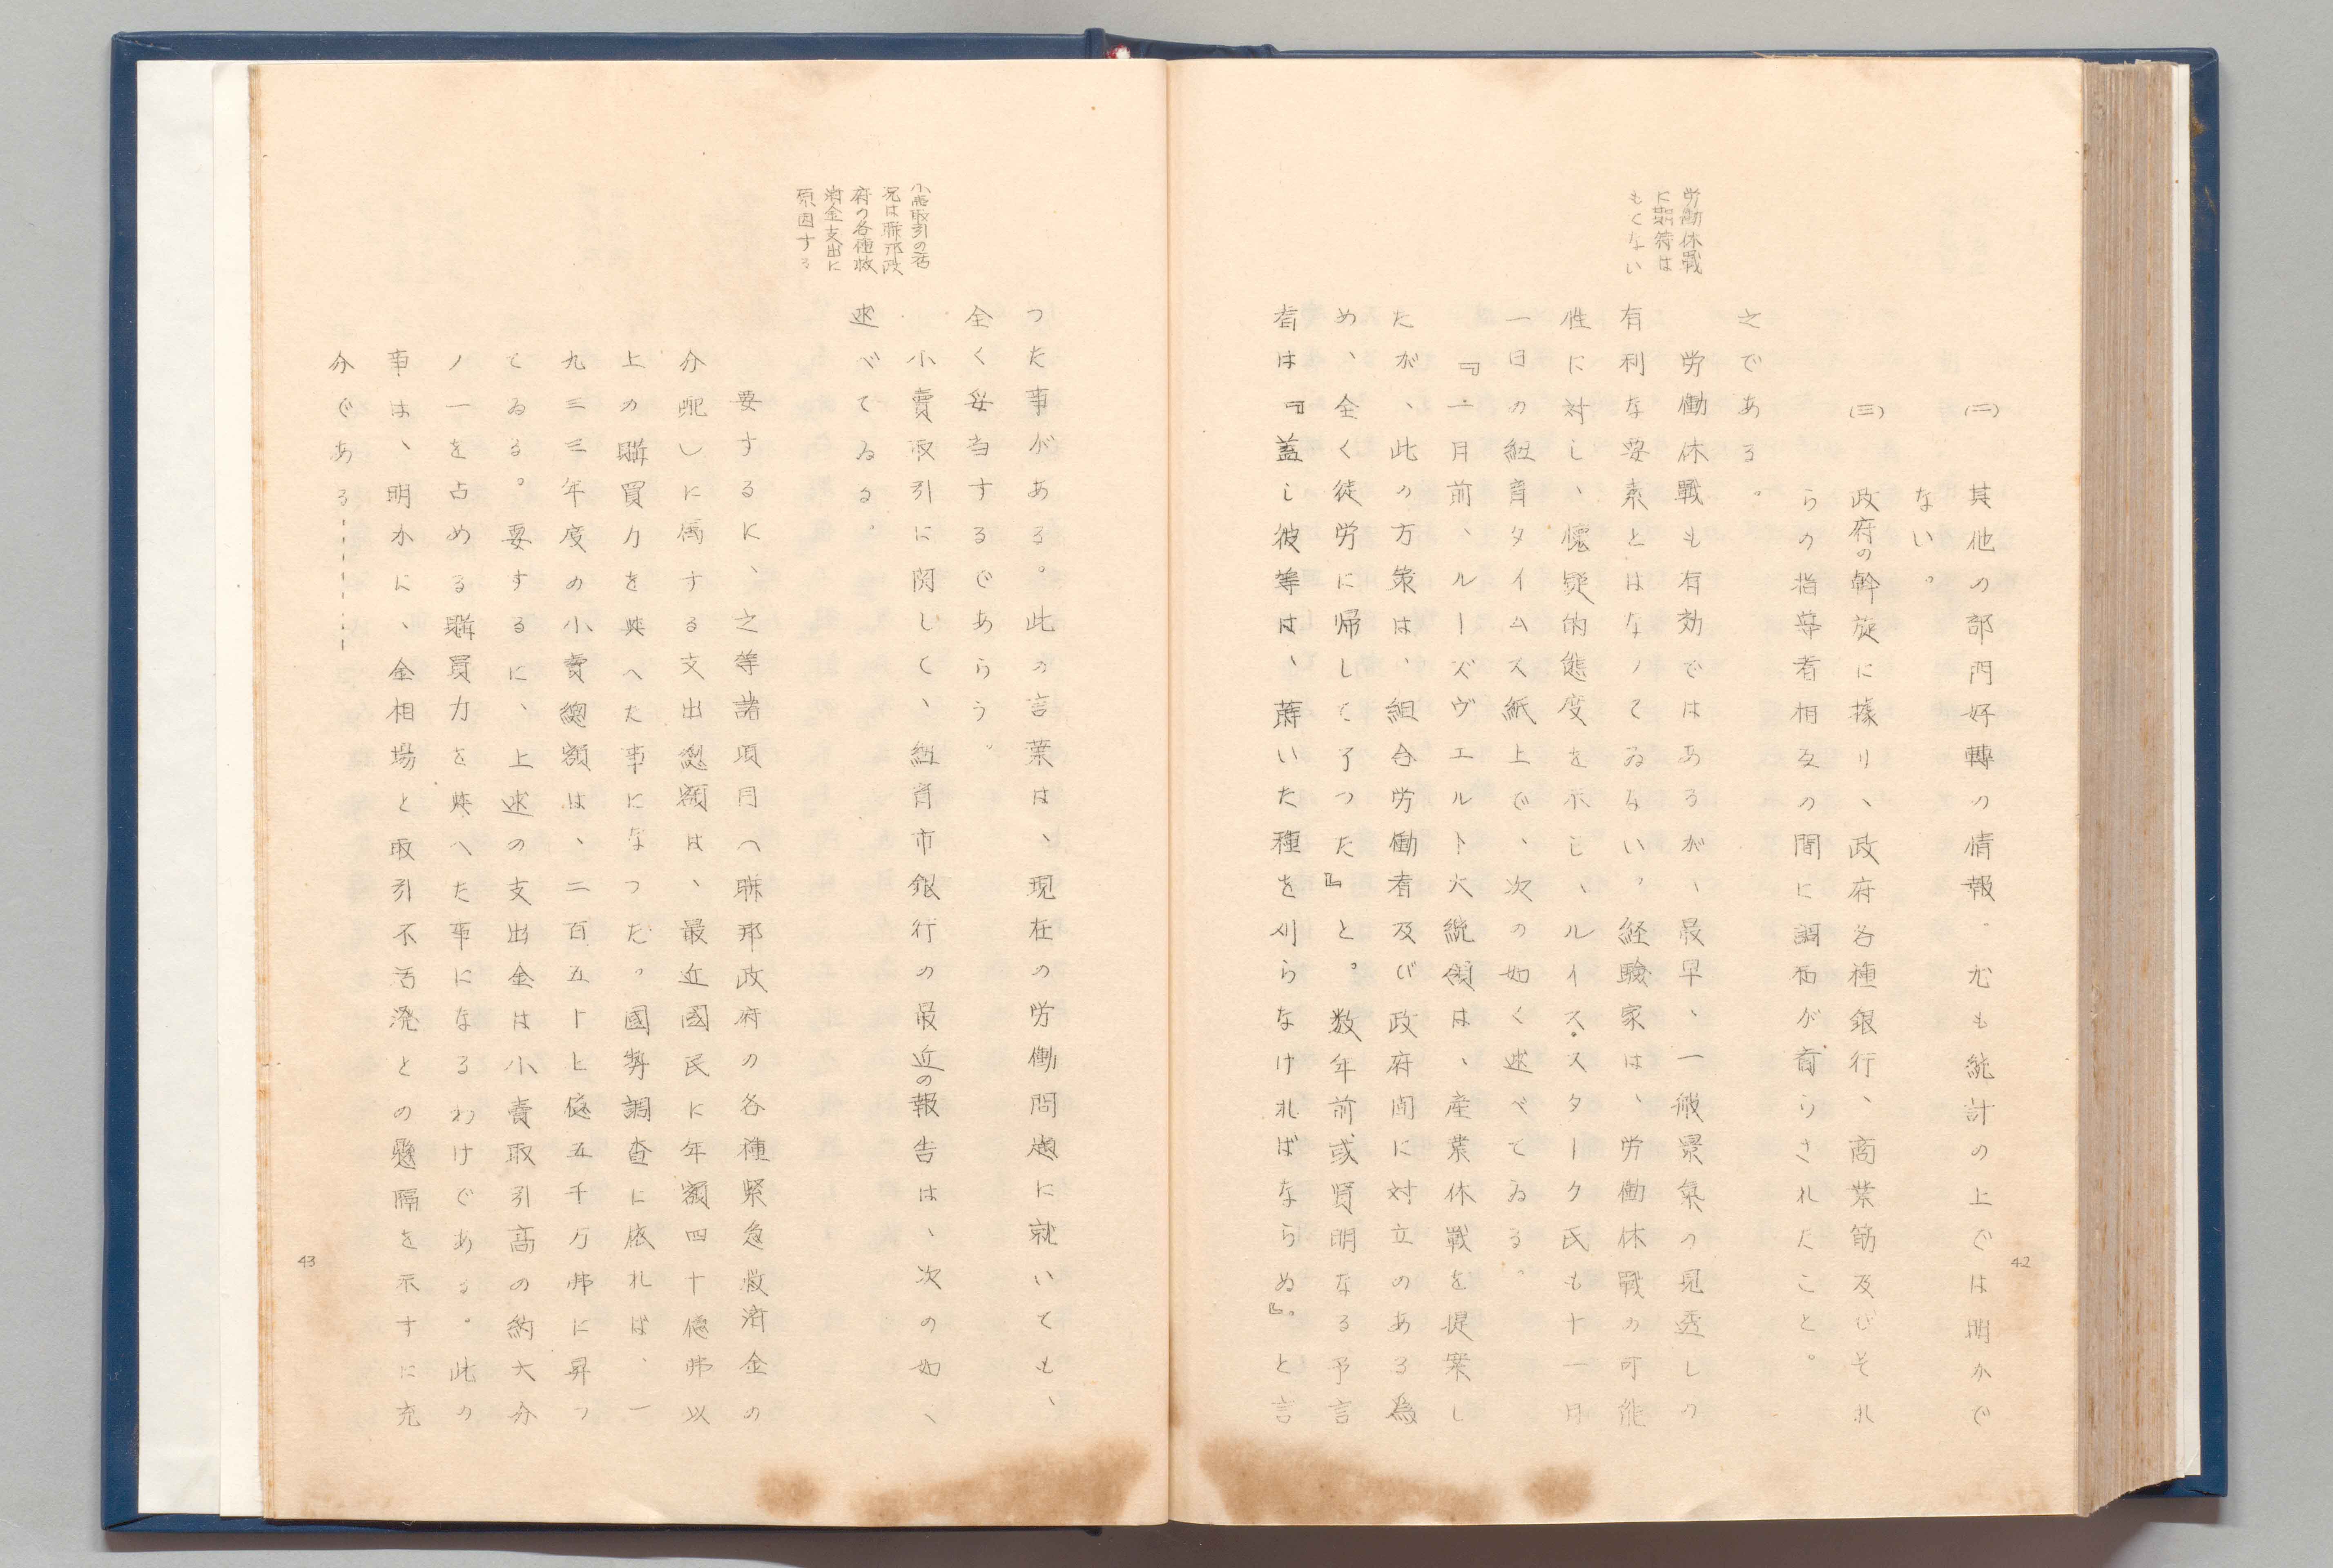 (二) 其他の部門好轉の情報、尤も統計の上では明かで
ない。
(三) 政府の斡旋に據り、政府各種銀行、商業筋及びそれ
らの指導者相互の間に調和が齎らされたこと。
之である。
労働休戰
に期待は
もてない
労働休戰も有効ではあるが、最早、一般景氣の見透しの
有利な要素とはなつてゐない。経験家は、労働休戰の可能
性に対し、懐疑的態度を示し、ルイス・スターク氏も十一月
一日の紐育タイムス紙上で、次の如く述べてゐる。
『一月前、ルーズヴエルト大統領は、産業休戰を提案し
たが、此の方策は、組合労働者及び政府間に対立のある為
め、全く徒労に帰して了つた』と。数年前、或賢明なる予言
者は『蓋し彼等は、蒔いた種を刈らなければならぬ』。と言
42
つた事がある。此の言葉は、現在の労働問題に就いても、
全く妥当するであらう。
小賣取引の活
況は聯邦政
府の各種救
濟金支出に
原因する
小賣取引に関して、紐育市銀行の最近の報告は、次の如く
述べてゐる。
要するに、之等諸項目へ聯邦政府の各種緊急救済金の
分配しに属する支出総額は、最近國民に年額四十億弗以
上の購買力を與へた事になつた。國勢調査に依れば、一
九三三年度の小賣總額は、二百五十七億五千万弗に昇つ
てゐる。要するに、上述の支出金は小賣取引高の約六分
ノ一を占める購買力を與へた事になるわけである。此の
事は、明かに、金相場と取引不活溌との懸隔を示すに充
分である------
43